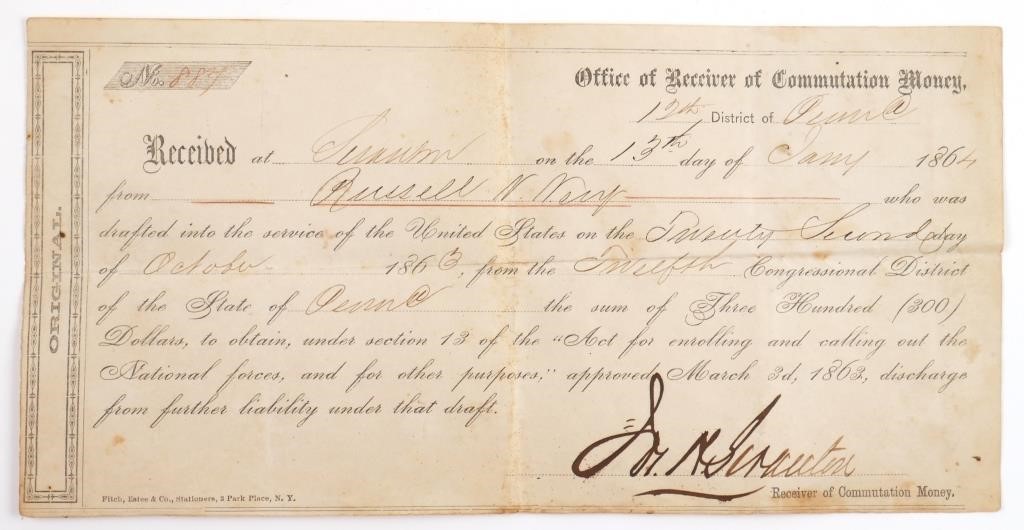 ORIGINAL.
No. 887
Office of Receiver of Commutation Money,
12th District of Penna
Received at Scranton on the 13th day of Jany 1864
from Russell N. who was
drafted into the service of the United States on the Twenty Second day
of October 1863, from the Twelfth Congressional District
of the State of Penna the sum of Three Hundred (300)
Dollars, to obtain, under section 13 of the "Act for enrolling and calling out the
National forces, and for other purposes," approved March 3d, 1863, discharge
from further liability under that draft.
Jos. H Scranton
Receiver of Commutation Money.
Fitch, Estee & Co., Stationers, 3 Park Place, N. Y.